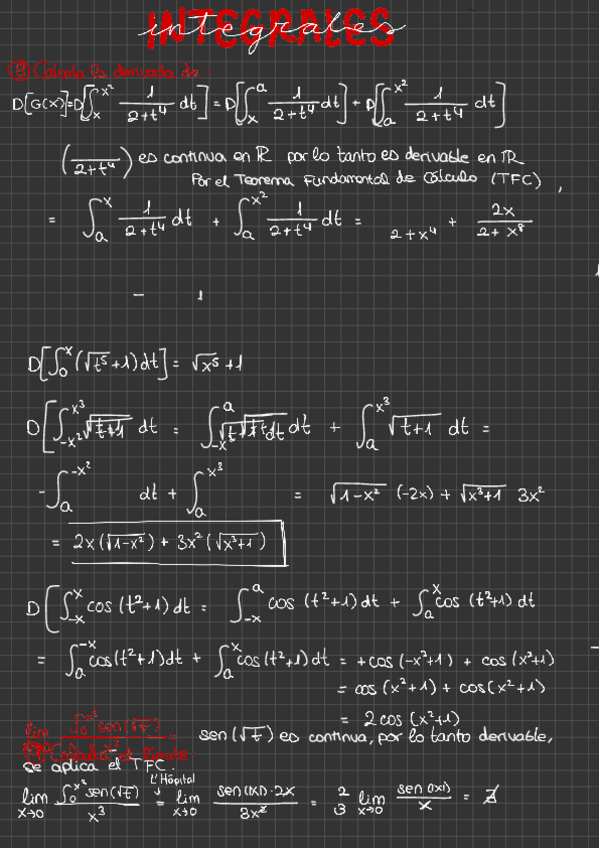 INTEGRALES
integrales
⑧ Calcula la derivada de :
D[G(x)]=D[∫_x^{x²} 1/(2+t⁴) dt] = D[∫_x^a 1/(2+t⁴) dt] + D[∫_a^{x²} 1/(2+t⁴) dt]
(1/(2+t⁴)) es continua en ℝ por lo tanto es derivable en ℝ
Por el Teorema Fundamental de Cálculo (TFC) ,
= ∫_a^x 1/(2+t⁴) dt + ∫_a^{x²} 1/(2+t⁴) dt = 2+x⁴ + 2x/(2+x⁸)
- 1
D[∫_0^x (√t⁵+1)dt] = √x⁵ +1
D[∫_{-x²}^{x³} √t+1 dt = ∫_{-x}^a √t+1 dt + ∫_a^{x³} √t+1 dt =
-∫_a^{-x²} dt + ∫_a^{x³} = √1-x² (-2x) + √x³+1 3x²
= 2x(√1-x²) + 3x²(√x³+1)
D[∫_{-x}^x cos (t²+1) dt = ∫_{-x}^a cos (t²+1) dt + ∫_a^x cos (t²+1) dt
= ∫_a^{-x} cos(t²+1)dt + ∫_a^x cos(t²+1)dt = +cos(-x²+1) + cos(x²+1)
= cos(x²+1) + cos(x²+1)
= 2cos(x²+1)
lim ∫_0^{x²} sen(√t) =
Calcula el límite:
sen(√t) es continua, por lo tanto derivable,
se aplica el TFC.
L'Hôpital
lim_{x→0} ∫_0^{x²} sen(√t) / x³ = lim_{x→0} sen(|x|)·2x / 3x² = 2/3 lim_{x→0} sen(|x|)/x = ∄